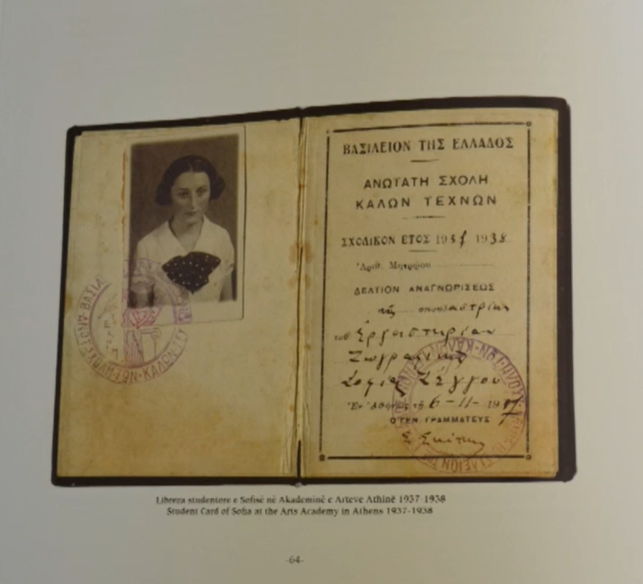 ΒΑΣΙΛΕΙΟΝ ΤΗΣ ΕΛΛΑΔΟΣ
ΑΝΩΤΑΤΗ ΣΧΟΛΗ
ΚΑΛΩΝ ΤΕΧΝΩΝ
ΣΧΟΛΙΚΟΝ ΕΤΟΣ 1937 1938
Ἀριθ. Μητρῴου
ΔΕΛΤΙΟΝ ΑΝΑΓΝΩΡΙΣΕΩΣ
τῆς σπουδαστρίας
τοῦ Ἐργαστηρίου
Ζωγραφικῆς
Σοφίας Ζέγγου
Ἐν Ἀθήναις τῇ 6-11-1937
Ο ΓΕΝ. ΓΡΑΜΜΑΤΕΥΣ
Libreza studentore e Sofisë në Akademinë e Arteve Athinë 1937-1938
Student Card of Sofia at the Arts Academy in Athens 1937-1938
-64-